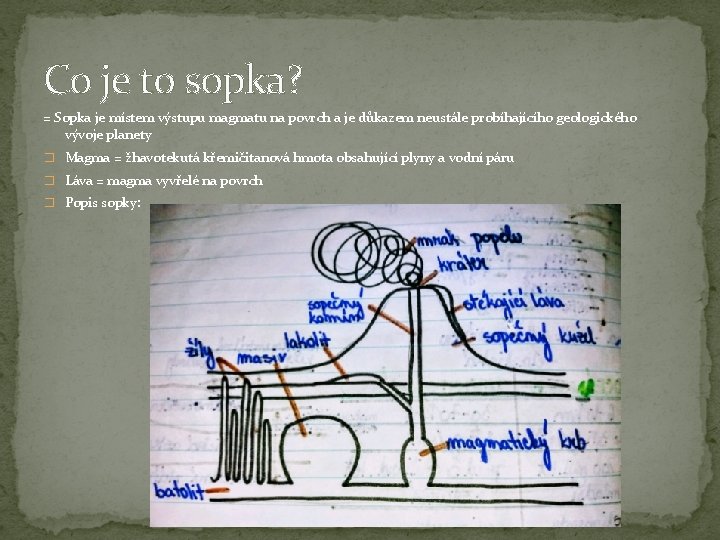 Co je to sopka?
= Sopka je místem výstupu magmatu na povrch a je důkazem neustále probíhajícího geologického
vývoje planety
Magma = žhavotekutá křemičitanová hmota obsahující plyny a vodní páru
Láva = magma vyvřelé na povrch
Popis sopky:
mrak popelu
kráter
sopečný
komín
stékající láva
sopečný kužel
lakolit
žíly
masiv
magmatický krb
batolit